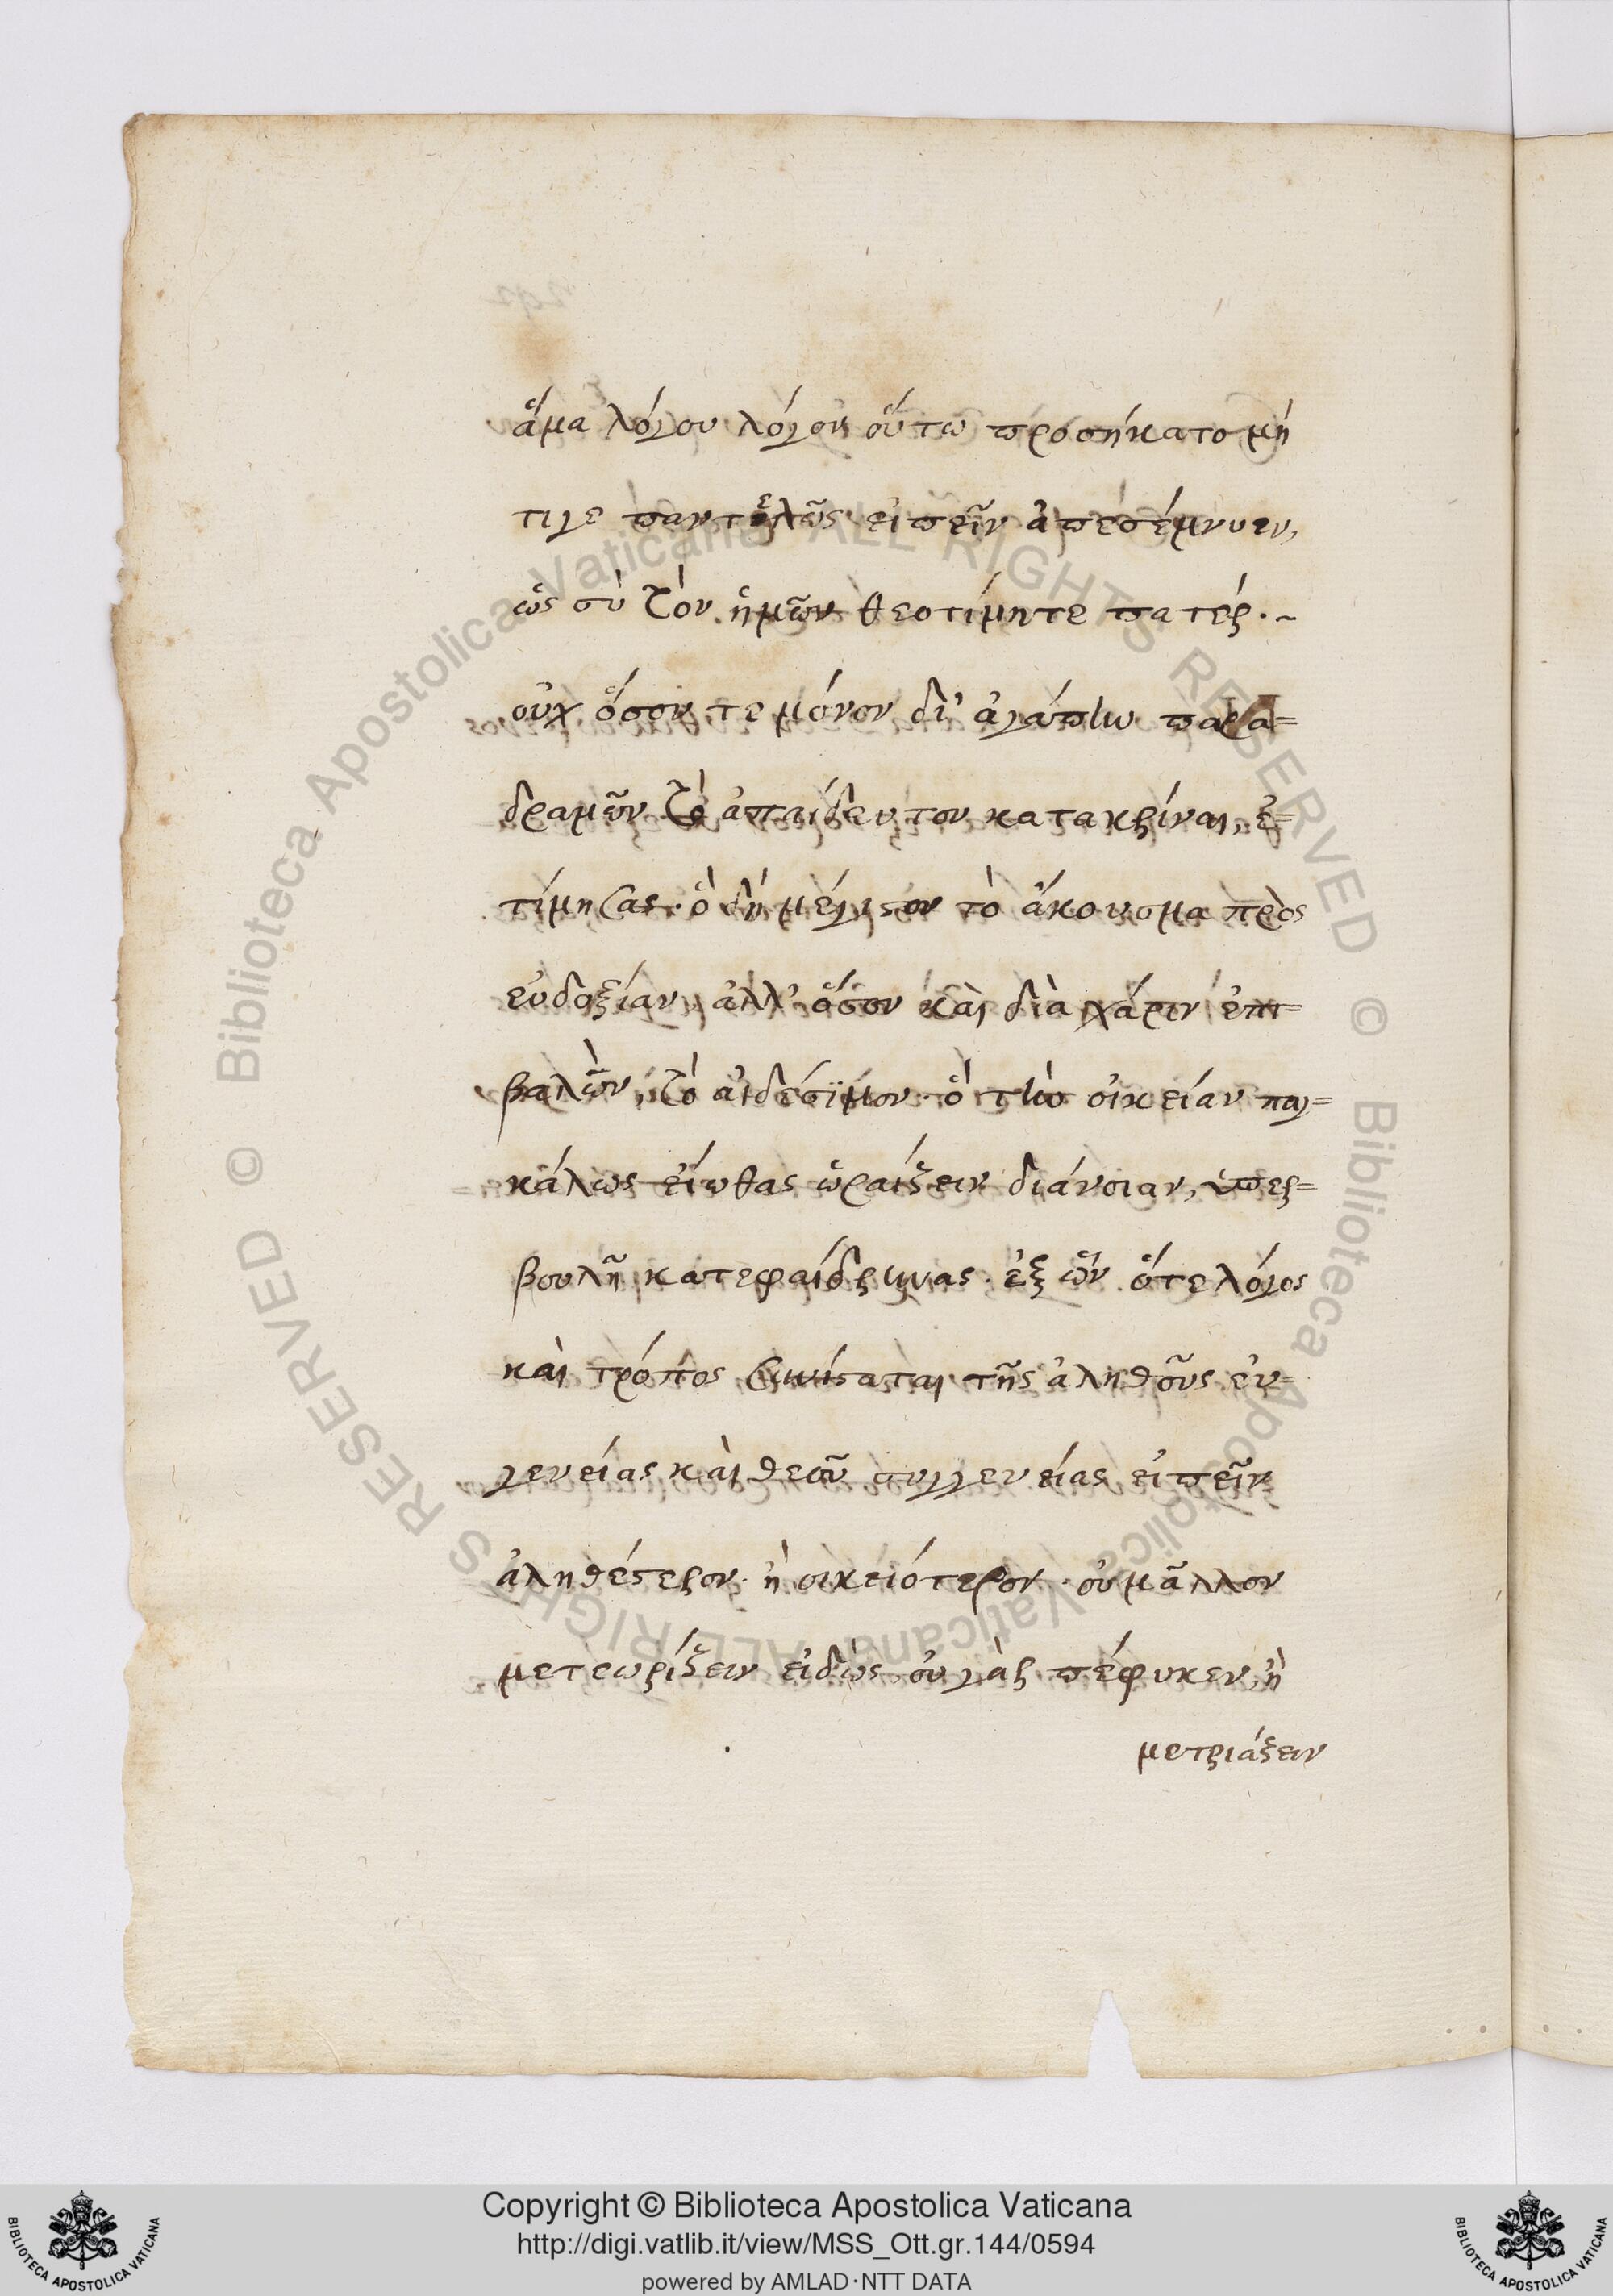 ἅμα λόγου λόγον οὕτω προσήκατο μή
τιγε παντελῶς εἰπεῖν ἀπεσέμνυεν,
ὡς σὺ τὸν ἡμῶν θεοτίμητε πατέρ.~
οὐχ ὅσον τε μόνον δι' ἀγάπην παρα=
δραμῶν τὸ ἀπαίδευτον κατακρίναι, ἐ=
τίμησας. ὃ δὴ μέγιστον τὸ ἄκουσμα πρὸς
εὐδοξίαν, ἀλλ' ὅσον καὶ διὰ χάριν ἐπι=
βαλὼν τὸ αἰδέσϊμον. ὃ τὴν οἰκείαν παγ=
κάλως εἴωθας ὡραίζειν διάνοιαν, ὑπερ=
βουλῆ κατεφαίδρυνας. ἐξ ὧν ὅτε λόγος
καὶ τρόπος συνίσταται τῆς ἀληθοῦς εὐ=
γενείας καὶ θεοῦ συγγενείας εἰπεῖν
ἀληθέστερον. ἢ οἰκειότερον. οὐ μᾶλλον
μετεωρίζειν εἰδὼς οὐ γὰρ πέφυκεν, ἢ
μετριάζειν
© Biblioteca Apostolica Vaticana ALL RIGHTS RESERVED © Biblioteca Apostolica Vaticana ALL RIGHTS RESERVED
Copyright © Biblioteca Apostolica Vaticana
http://digi.vatlib.it/view/MSS_Ott.gr.144/0594
powered by AMLAD·NTT DATA
BIBLIOTECA APOSTOLICA VATICANA
BIBLIOTECA APOSTOLICA VATICANA